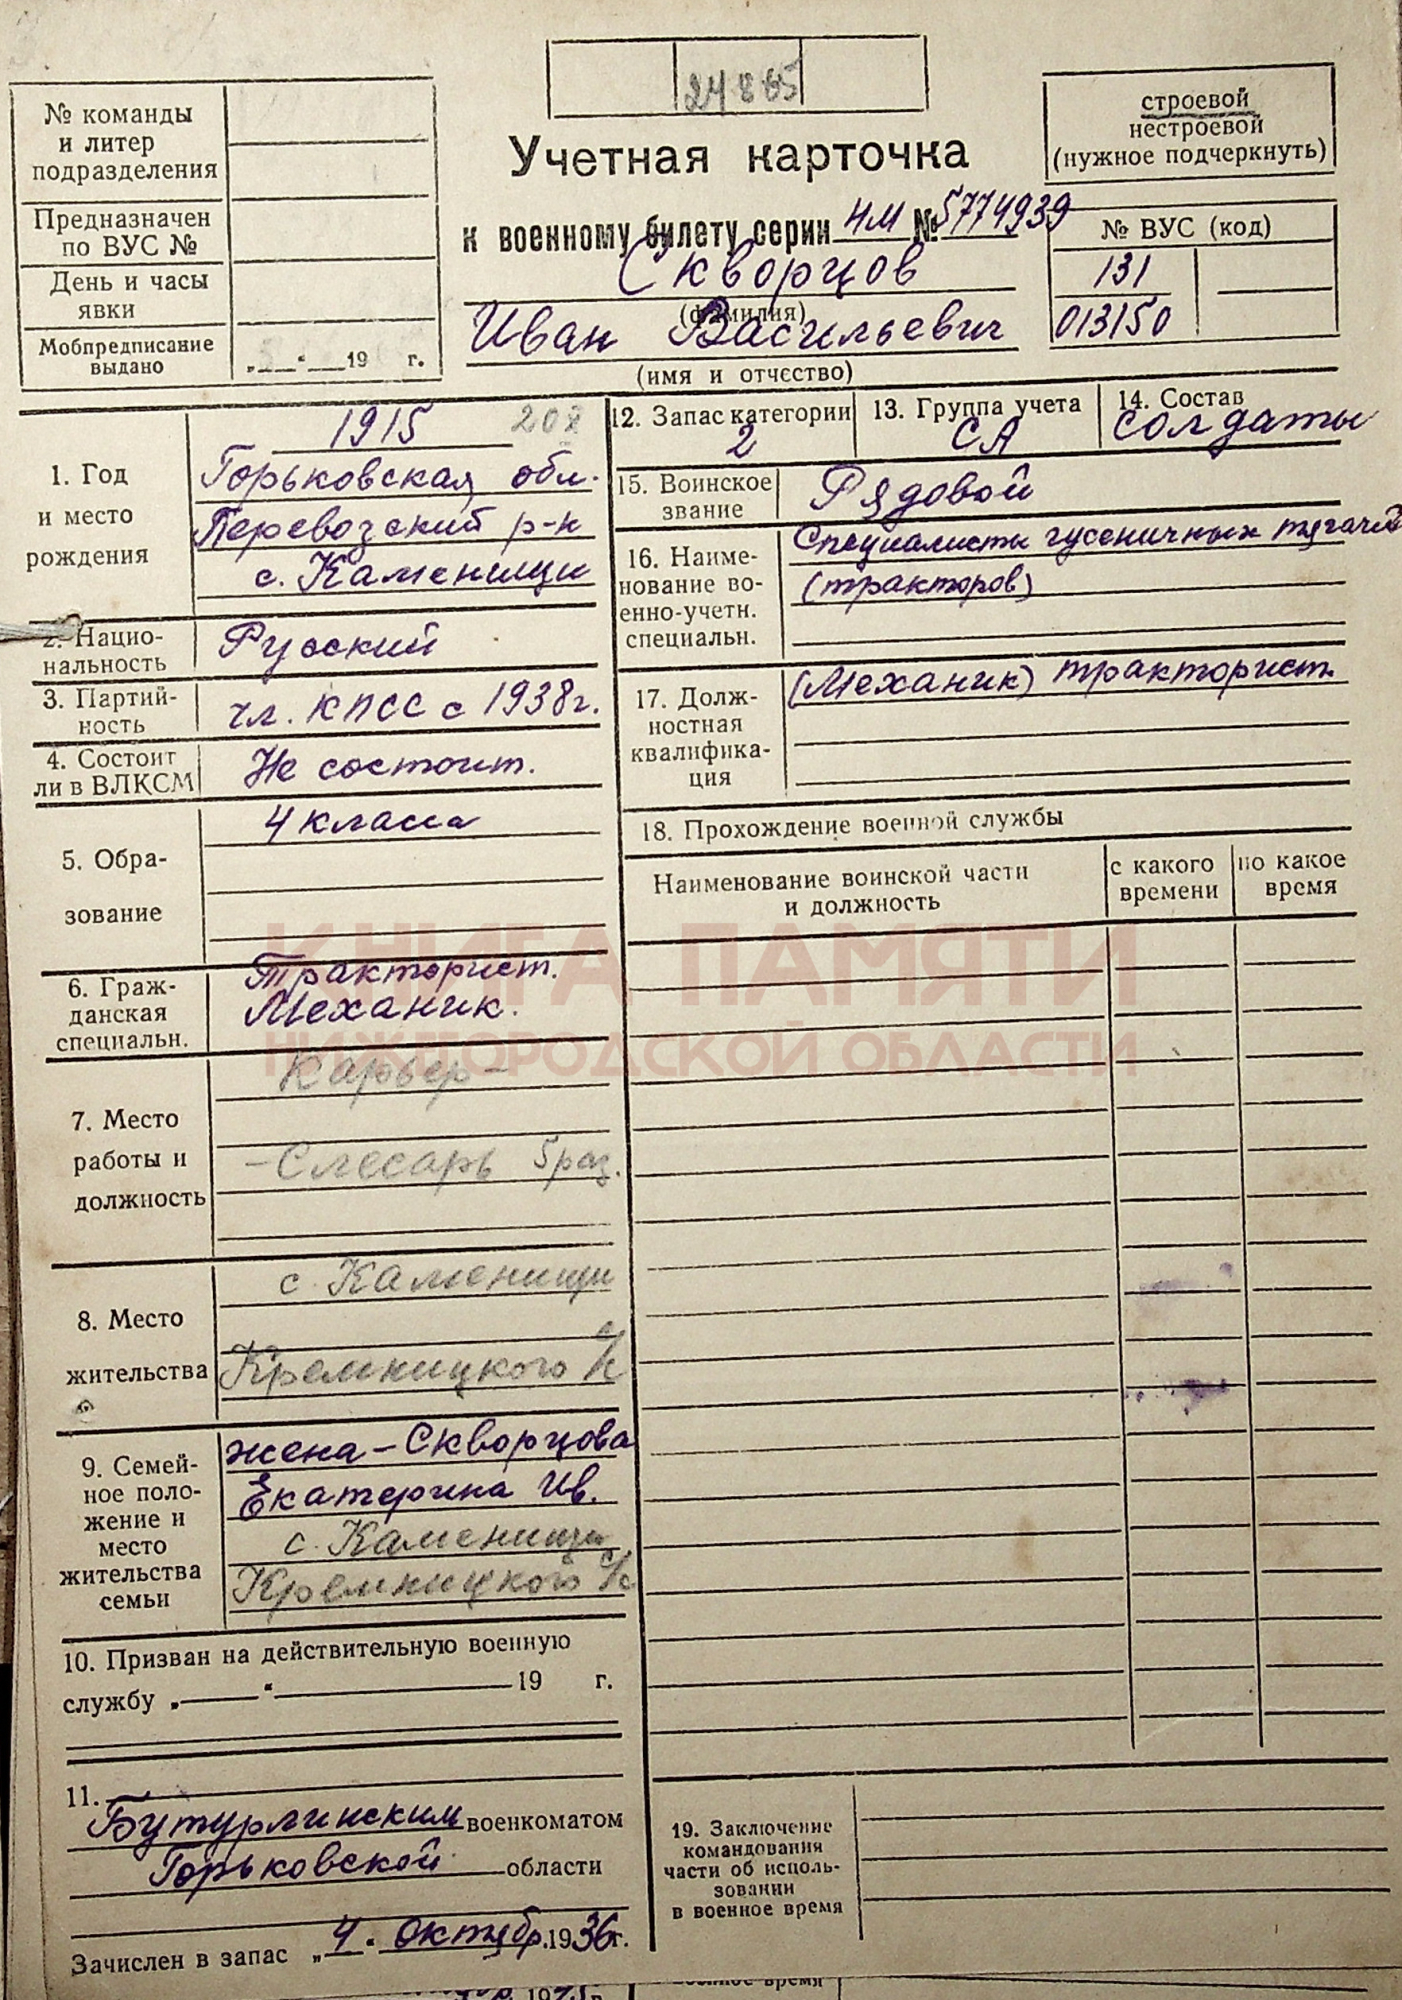 24885
№ команды
и литер
подразделения
Предназначен
по ВУС №
День и часы
явки
Мобпредписание
выдано
„ “ 19 г.
Учетная карточка
к военному билету серии НМ № 5774939
Скворцов
(фамилия)
Иван Васильевич
(имя и отчество)
строевой
нестроевой
(нужное подчеркнуть)
№ ВУС (код)
131
013150
1. Год
и место
рождения
1915
Горьковская обл.
Перевозский р-н
с. Каменищи
2. Нацио-
нальность
Русский
3. Партий-
ность
чл. КПСС с 1938г.
4. Состоит
ли в ВЛКСМ
Не состоит.
5. Обра-
зование
4 класса
6. Граж-
данская
специальн.
Тракторист.
Механик.
7. Место
работы и
должность
Карьер-
-Слесарь 5 раз.
8. Место
жительства
с. Каменищи
Кремницкого с/с
9. Семей-
ное поло-
жение и
место
жительства
семьи
жена - Скворцова
Екатерина Ив.
с. Каменищи
Кремницкого с/с
10. Призван на действительную военную
службу „ “ 19 г.
11.
Бутурлинским военкоматом
Горьковской области
Зачислен в запас „4“ октябр. 1936г.
12. Запас категории
2
13. Группа учета
СА
14. Состав
солдаты
15. Воинское
звание
Рядовой
16. Наиме-
нование во-
енно-учетн.
специальн.
Специалисты гусеничных тягачей
(тракторов)
17. Долж-
ностная
квалифика-
ция
(Механик) тракторист
18. Прохождение военной службы
Наименование воинской части
и должность
с какого
времени
по какое
время
19. Заключение
командования
части об исполь-
зовании
в военное время
КНИГА ПАМЯТИ
НИЖЕГОРОДСКОЙ ОБЛАСТИ